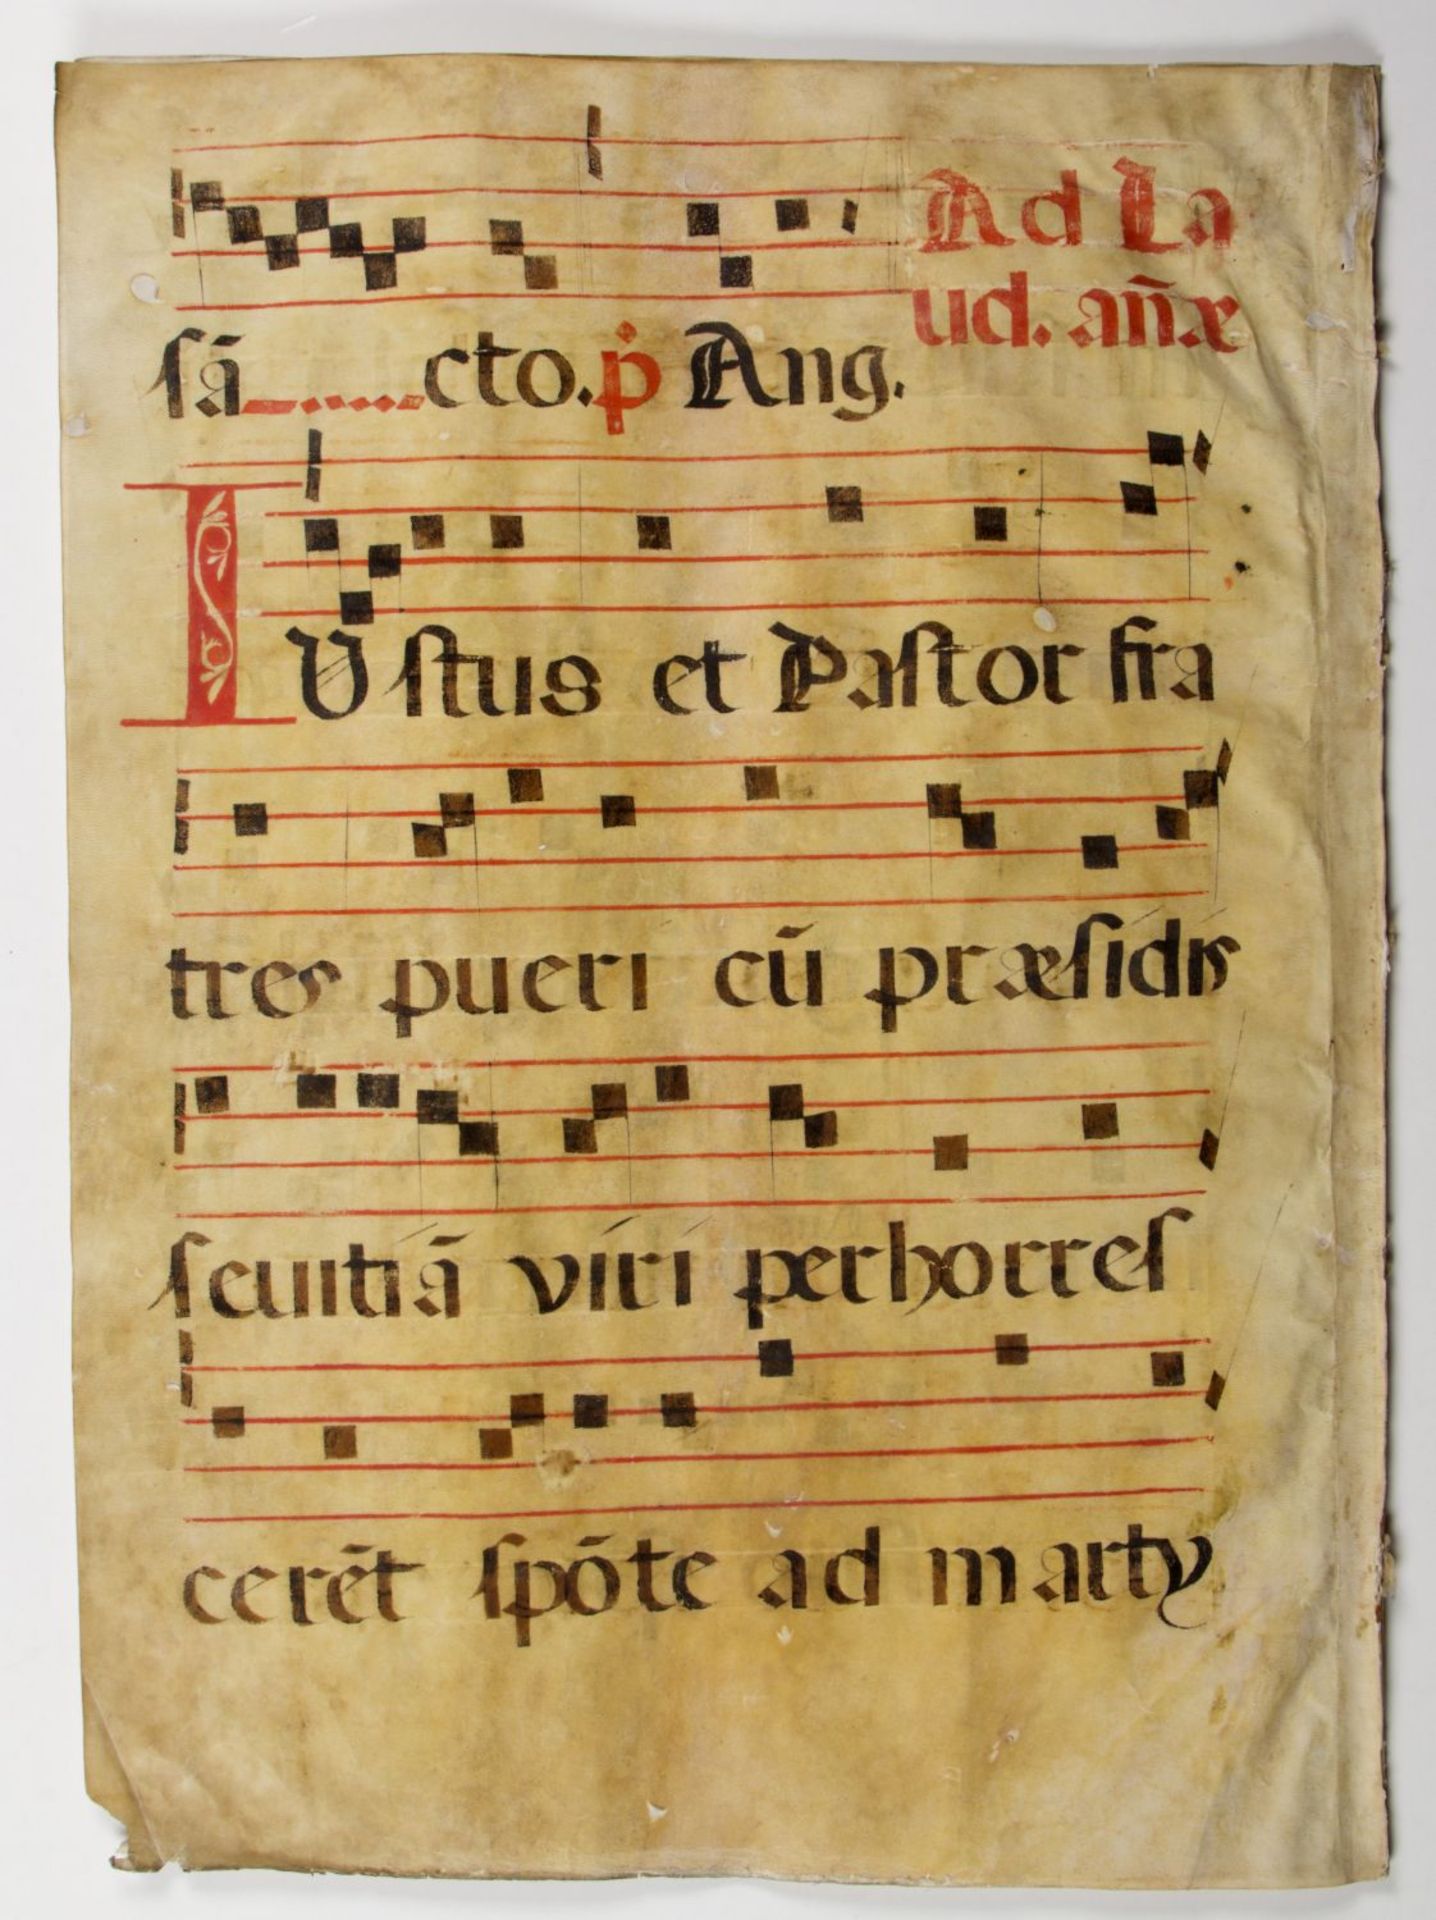 Ad La
ud. añæ
sā cto. p̄ Ang.
IUstus et Pastor fra
tres pueri cū præsidis
sevitiā viri perhorres
cerēt spōte ad marty